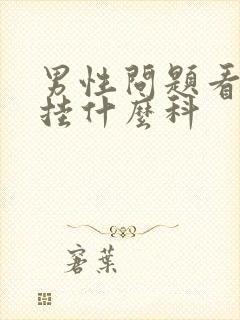 男性問題看
挂什麼科
葉